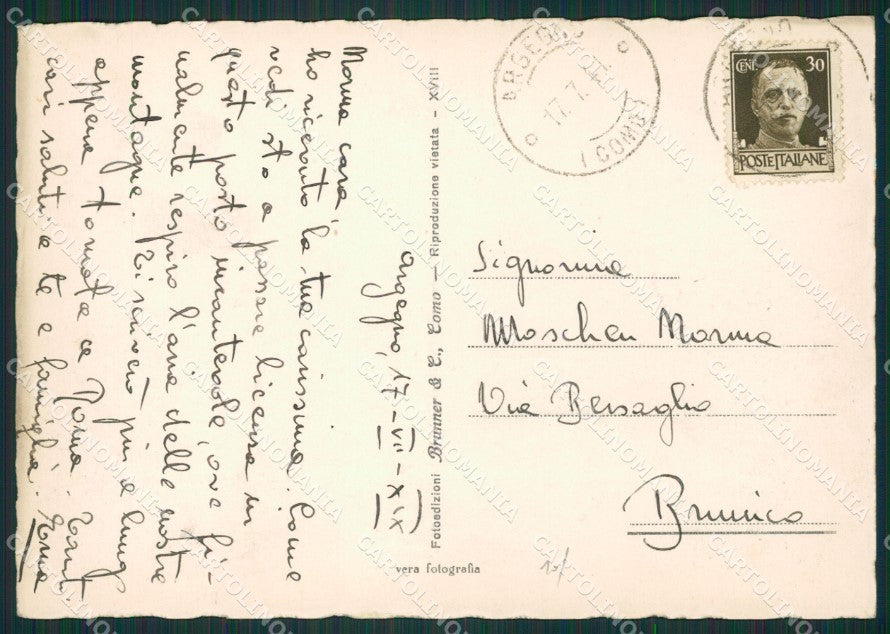 Argegno, 17-VII-XIX
Norma cara,
ho ricevuto la tua carissima. Come
vedi sto a passare licenza in
questo posto incantevole, ove fi-
nalmente respiro l'aria delle nostre
montagne. Ti scriverò più a lungo
appena tornata a Roma. Tanti
cari saluti a te e famiglia.
Fotoedizioni Brunner & C., Como — Riproduzione vietata - XVIII
vera fotografia
ARGEGNO
17.7.
(COMO)
CENT. 30
POSTE ITALIANE
Signorina
Moschen Norma
Via Bersaglio
Brunico
CARTOLINOMANIA